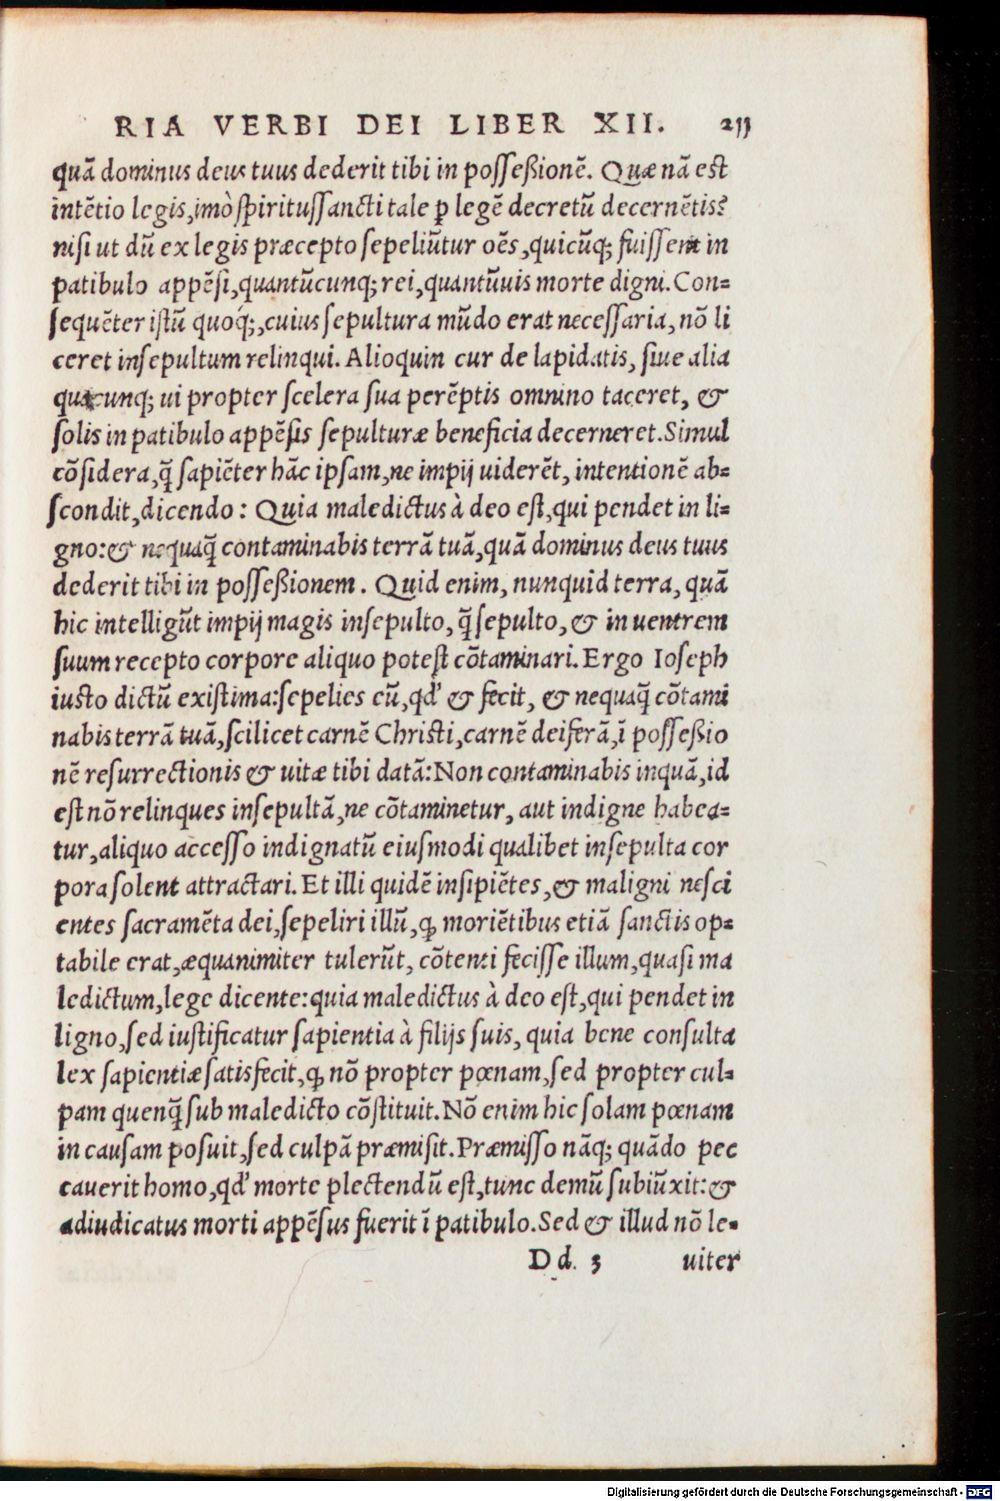 RIA VERBI DEI LIBER XII. 211
quā dominus deus tuus dederit tibi in posseßionē. Quæ nā est
intētio legis, imò spiritussancti tale ꝑ legē decretū decernētis?
nisi ut dū ex legis præcepto sepeliūtur oēs, quicūq; fuissent in
patibulo appēsi, quantūcunq; rei, quantūuis morte digni. Con=
sequēter istū quoq;, cuius sepultura mūdo erat necessaria, nō li
ceret insepultum relinqui. Alioquin cur de lapidatis, siue alia
quacunq; ui propter scelera sua perēptis omnino taceret, &
solis in patibulo appēsis sepulturæ beneficia decerneret. Simul
cōsidera, q̄ sapiēter hāc ipsam, ne impij uiderēt, intentionē ab=
scondit, dicendo: Quia maledictus à deo est, qui pendet in li=
gno: & nequaq̄ contaminabis terrā tuā, quā dominus deus tuus
dederit tibi in posseßionem. Quid enim, nunquid terra, quā
hic intelligūt impij magis insepulto, q̄ sepulto, & in uentrem
suum recepto corpore aliquo potest cōtaminari. Ergo Ioseph
iusto dictū existima: sepelies eū, qd' & fecit, & nequaq̄ cōtami
nabis terrā tuā, scilicet carnē Christi, carnē deiferā, ī posseßio
nē resurrectionis & uitæ tibi datā: Non contaminabis inquā, id
est nō relinques insepultā, ne cōtaminetur, aut indigne habea=
tur, aliquo accesso indignatū eiusmodi qualibet insepulta cor
pora solent attractari. Et illi quidē insipiētes, & maligni nesci
entes sacramēta dei, sepeliri illū, ꝙ moriētibus etiā sanctis op=
tabile erat, æquanimiter tulerūt, cōtenti fecisse illum, quasi ma
ledictum, lege dicente: quia maledictus à deo est, qui pendet in
ligno, sed iustificatur sapientia à filijs suis, quia bene consulta
lex sapientiæ satisfecit, ꝙ nō propter pœnam, sed propter cul=
pam quenq̄ sub maledicto cōstituit. Nō enim hic solam pœnam
in causam posuit, sed culpā præmisit. Præmisso nāq; quādo pec
cauerit homo, qd' morte plectendū est, tunc demū subiūxit: &
adiudicatus morti appēsus fuerit ī patibulo. Sed & illud nō le=
Dd. 3 uiter
Digitalisierung gefördert durch die Deutsche Forschungsgemeinschaft - DFG